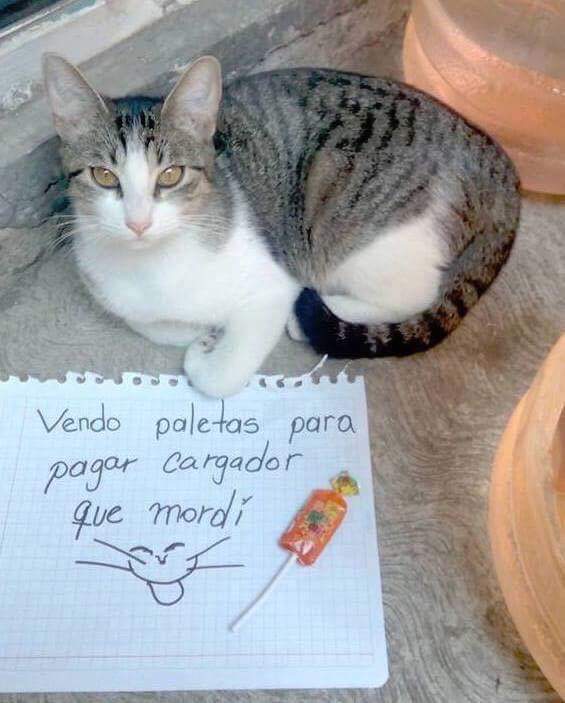 Vendo paletas para
pagar cargador
que mordí